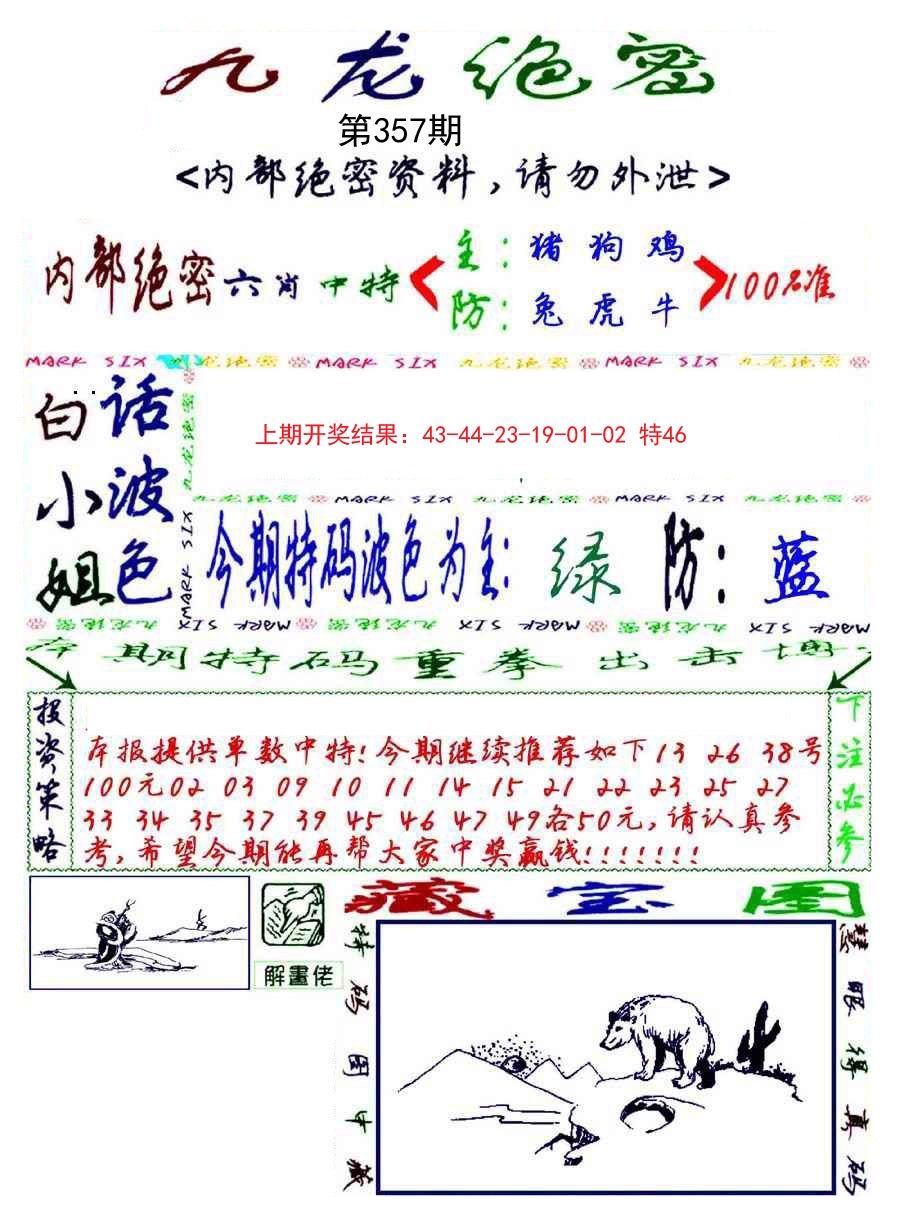 九龙绝密
第357期
<内部绝密资料,请勿外泄>
内部绝密六肖中特 主:猪狗鸡 100%准
防:兔虎牛
MARK SIX 九龙绝密 MARK SIX 九龙绝密 MARK SIX 九龙绝密
白话
小波
姐色
九龙绝密
MARK SIX
上期开奖结果: 43-44-23-19-01-02 特46
九龙绝密 MARK SIX 九龙绝密 MARK SIX 九龙绝密
今期特码波色为主: 绿 防: 蓝
九龙绝密 MARK SIX 九龙绝密 MARK SIX 九龙绝密 MARK SIX
本期特码重拳出击博
投资策略
本报提供单数中特!今期继续推荐如下13 26 38号
100元02 03 09 10 11 14 15 21 22 23 25 27
33 34 35 37 39 45 46 47 49各50元,请认真参
考,希望今期能再帮大家中奖赢钱!!!!!!!
下注必参
解畫佬
藏宝图
特码图中藏
慧眼得真码